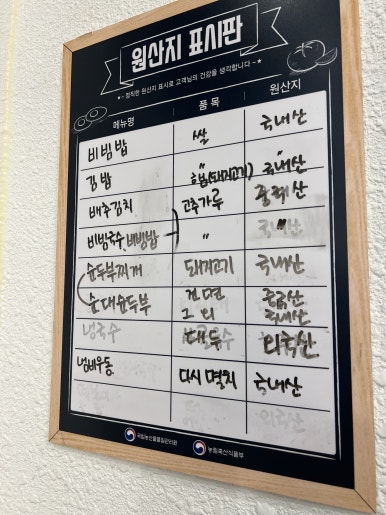 원산지 표시판
★~ 정직한 원산지 표시로 고객님의 건강을 생각합니다 ~★
메뉴명 품목 원산지
비빔밥 쌀 국내산
김밥 " "
햄(돼지고기) 국내산
배추김치 고추가루 중국산
비빔국수, 비빔밥 " 국내산 "
순두부찌개 돼지고기 국내산
순대순두부 건면 중국산
그 외 국내산
냉국수 대두 외국산
냄비우동 다시 멸치 국내산
외국산
국립농산물품질관리원 농림축산식품부